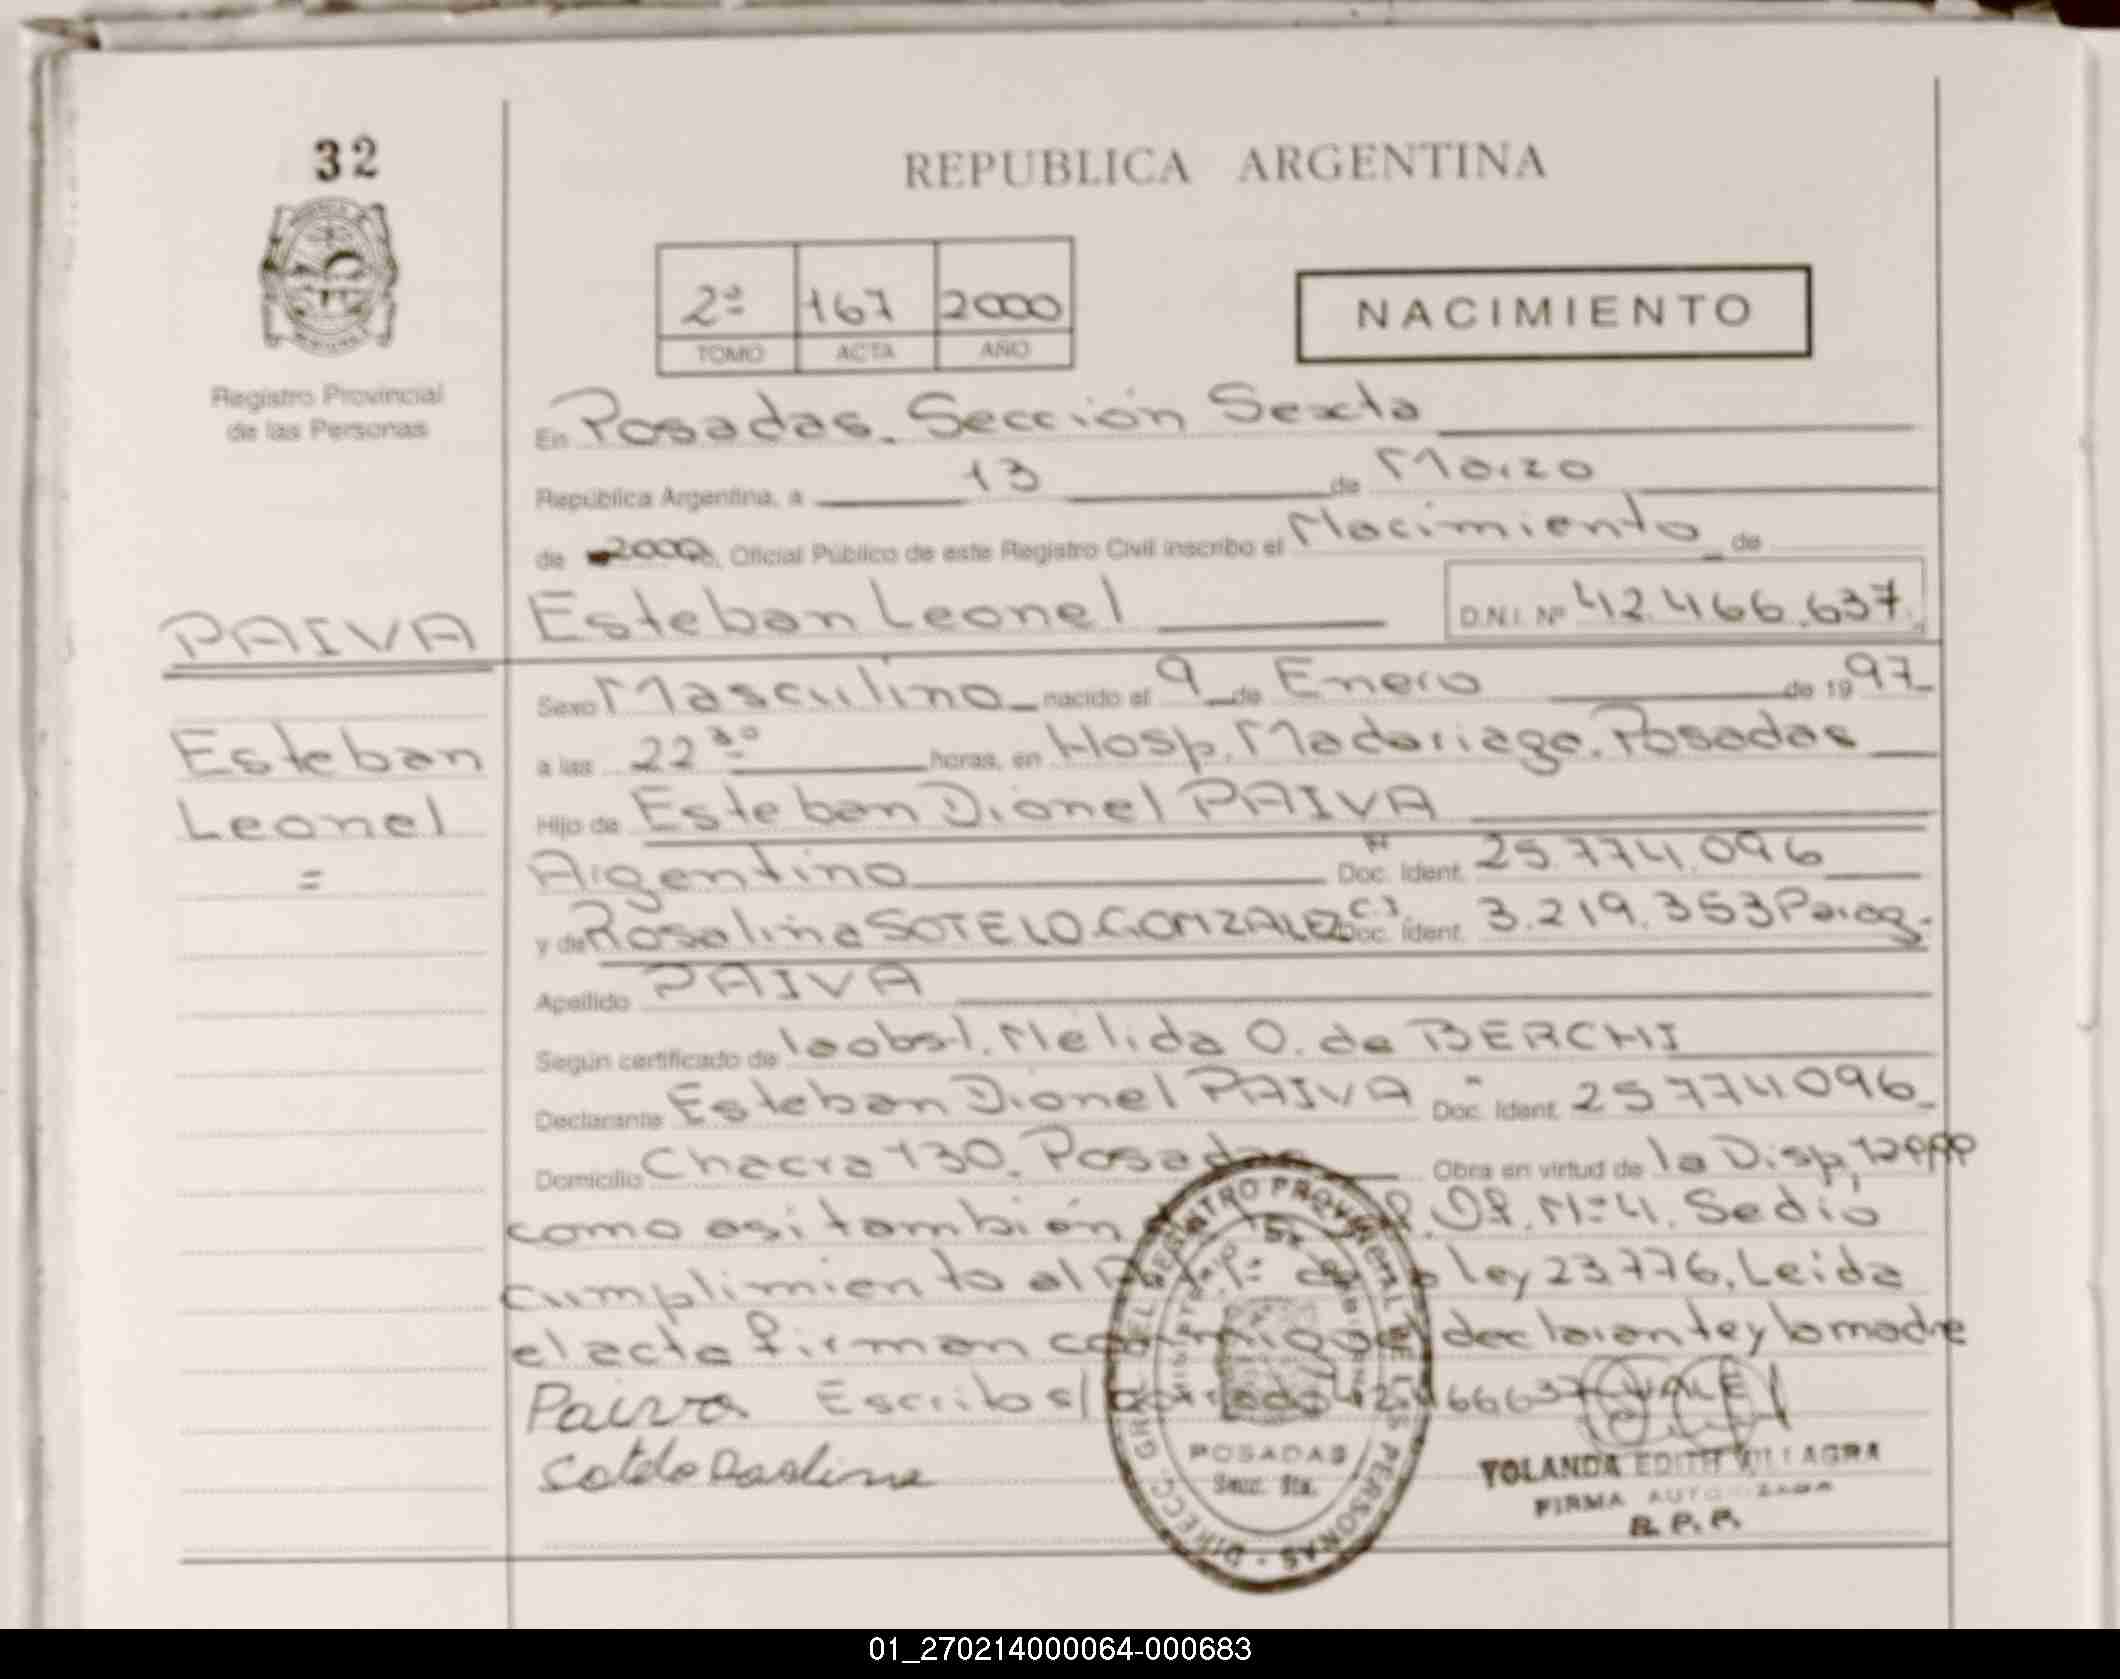 32
REPUBLICA ARGENTINA
2º 167 2000
TOMO ACTA AÑO
NACIMIENTO
Registro Provincial
de las Personas
En Posadas. Sección Sexta
República Argentina, a 13 de Marzo
de 2000, Oficial Público de este Registro Civil inscribo el Nacimiento de
PAIVA Esteban Leonel D.N.I. Nº 42.466.637
Sexo Masculino nacido el 9 de Enero de 1997
Esteban
Leonel
=
a las 22 30 horas, en Hosp. Madariaga. Posadas
Hijo de Esteban Dionel PAIVA
Argentino Doc. Ident. 25.774.096
y de Rosalina SOTELO GONZALEZ C.I. Doc. Ident. 3.219.353 Parag.
Apellido PAIVA
Según certificado de la obst. Nelida O. de BERCHI
Declarante Esteban Dionel PAIVA Doc. Ident. 25774096
Domicilio Chacra 130. Posadas Obra en virtud de la Disp.
como asi también Of. Nº 4. Se dió
cumplimiento al Ley 23.776. Leida
el acta firman conmigo el declarante y la madre
Paiva Escribo s/ 42466637 VALE
Sotelo Rosalina
DIRECC. GRAL. DEL REGISTRO PROVINCIAL DE LAS PERSONAS
POSADAS
Secc. 6ta.
YOLANDA EDITH VILLAGRA
FIRMA AUTORIZADA
R. P. P.
01_270214000064-000683